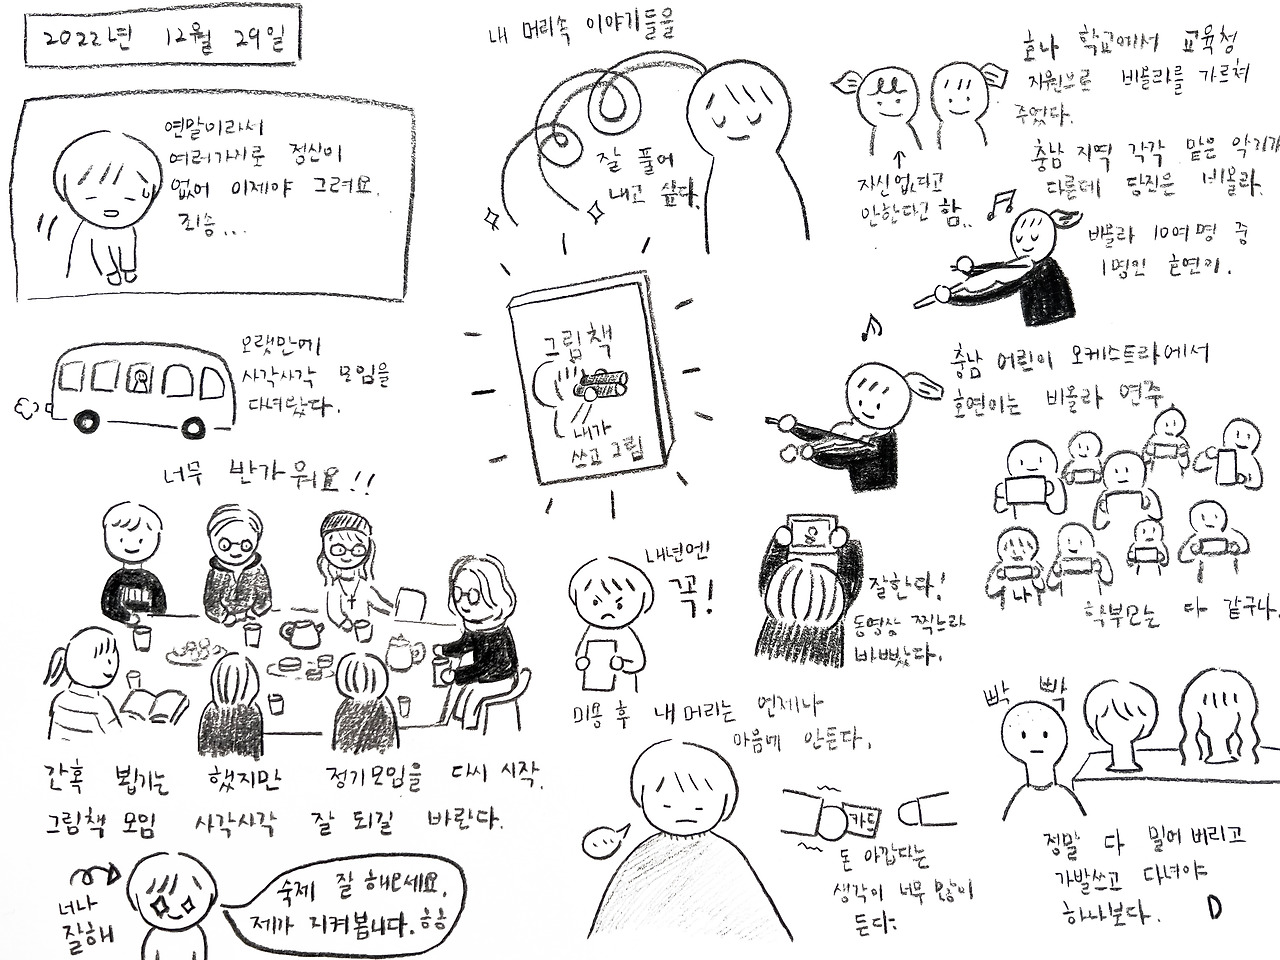 2022년 12월 29일
연말이라서
여러가지로 정신이
없어 이제야 그려요.
죄송...
오랫만에
사각사각 모임을
다녀왔다.
너무 반가워요!!
간혹 뵙기는 했지만 정기모임을 다시 시작.
그림책 모임 사각사각 잘 되길 바란다.
너나
잘해
숙제 잘 해오세요.
제가 지켜봅니다. ㅎㅎ
내 머리속 이야기들을
잘 풀어
내고 싶다.
그림책
내가
쓰고 그림
내년엔!
꼭!
미용 후 내 머리는 언제나
마음에 안든다.
카드
돈 아깝다는
생각이 너무 많이
든다.
호나 학교에서 교육청
지원으로 비올라를 가르쳐
주었다.
충남 지역 각각 맡은 악기가
다른데 당진은 비올라.
자신 없다고
안한다고 함..
비올라 10여명 중
1명인 호연이.
충남 어린이 오케스트라에서
호연이는 비올라 연주
잘한다!
동영상 찍느라
바빴다.
나
학부모는 다 같구나.
빡 빡
정말 다 밀어버리고
가발쓰고 다녀야
하나보다.
D